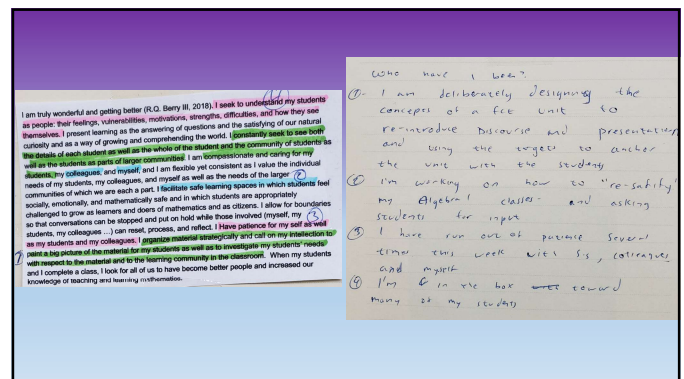 I am truly wonderful and getting better (R.Q. Berry III, 2018). I seek to understand my students
as people: their feelings, vulnerabilities, motivations, strengths, difficulties, and how they see
themselves. I present learning as the answering of questions and the satisfying of our natural
curiosity and as a way of growing and comprehending the world. I constantly seek to see both
the details of each student as well as the whole of the student and the community of students as
well as the students as parts of larger communities. I am compassionate and caring for my
students, my colleagues, and myself, and I am flexible yet consistent as I value the individual
needs of my students, my colleagues, and myself as well as the needs of the larger ②
communities of which we are each a part. I facilitate safe learning spaces in which students feel
socially, emotionally, and mathematically safe and in which students are appropriately
challenged to grow as learners and doers of mathematics and as citizens. I allow for boundaries
so that conversations can be stopped and put on hold while those involved (myself, my ③
students, my colleagues ...) can reset, process, and reflect. I Have patience for my self as well
as my students and my colleagues. I organize material strategically and call on my intellection to
① paint a big picture of the material for my students as well as to investigate my students' needs
with respect to the material and to the learning community in the classroom. When my students
and I complete a class, I look for all of us to have become better people and increased our
knowledge of teaching and learning mathematics.
Who have I been?
①- I am deliberately designing the
concepts of a fct unit to
re-introduce Discourse and presentations
and using the targets to anchor
the unit with the students
② I'm working on how to "re-safify"
my Algebra 1 classes - and asking
students for input
③ I have run out of patience several
times this week with S's, colleagues
and myself
④ I'm in the box toward
many of my students